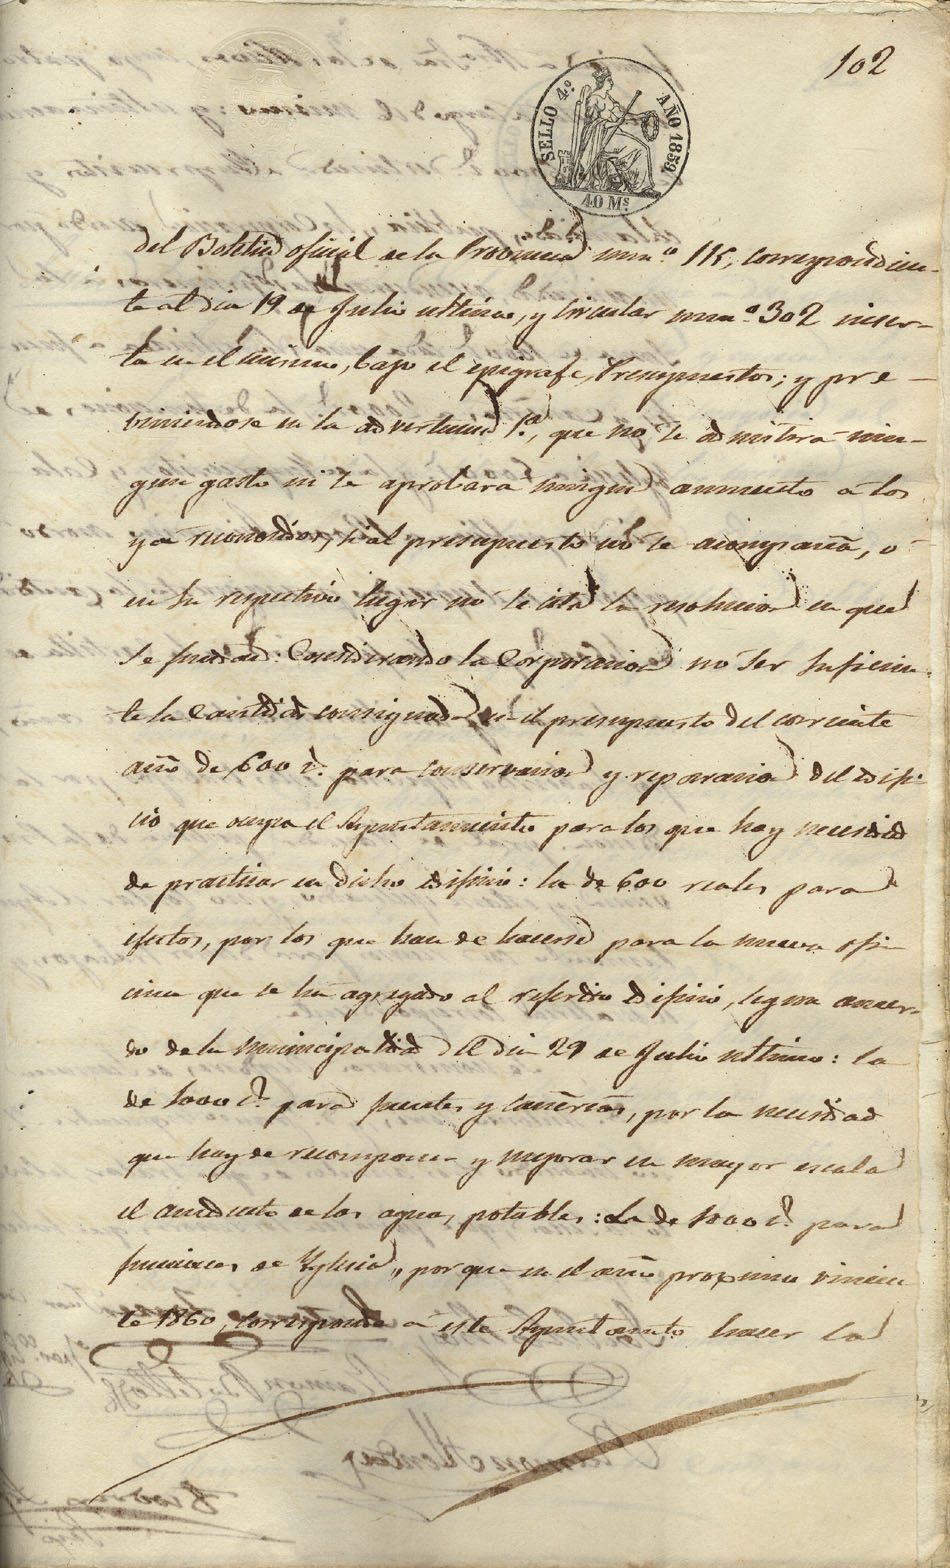 102
SELLO 4º. AÑO 1859.
40 Ms
del Boletin oficial de la Provincia num.º 115, correspondien-
te al dia 19 de Julio ultimo, y Circular num.º 302 inser-
ta en el mismo, bajo el epigrafe, Presupuestos; y pre-
viniendose en la advertencia 1.ª, que no se admitirá nin-
gun gasto ni se aprobara ningun aumento á los
ya reconocidos, si al presupuesto no se acompaña, o
en su respectivo lugar no se cita la resolucion en que
se funda: Considerando la Corporacion no ser suficien-
te la cantidad consignada en el presupuesto del corriente
año de 600 r.s para conservacion y reparacion del edifi-
cio que ocupa el Ayuntamiento para los que hay necesidad
de practicar en dicho edificio: la de 600 reales para
efectos, por los que han de hacerse para la nueva ofi-
cina que se ha agregado al referido edificio, segun acuer-
do de la municipalidad del dia 29 de Julio ultimo: la
de 1000 r.s para fuentes y cañerias, por la necesidad
que hay de recomponer y mejorar en mayor escala
el acueducto de las aguas potables: La de 1000 r.s para
funciones de Yglesia, porque en el año proximo vinien
te 1860, corresponde a este Ayuntamto hacer la